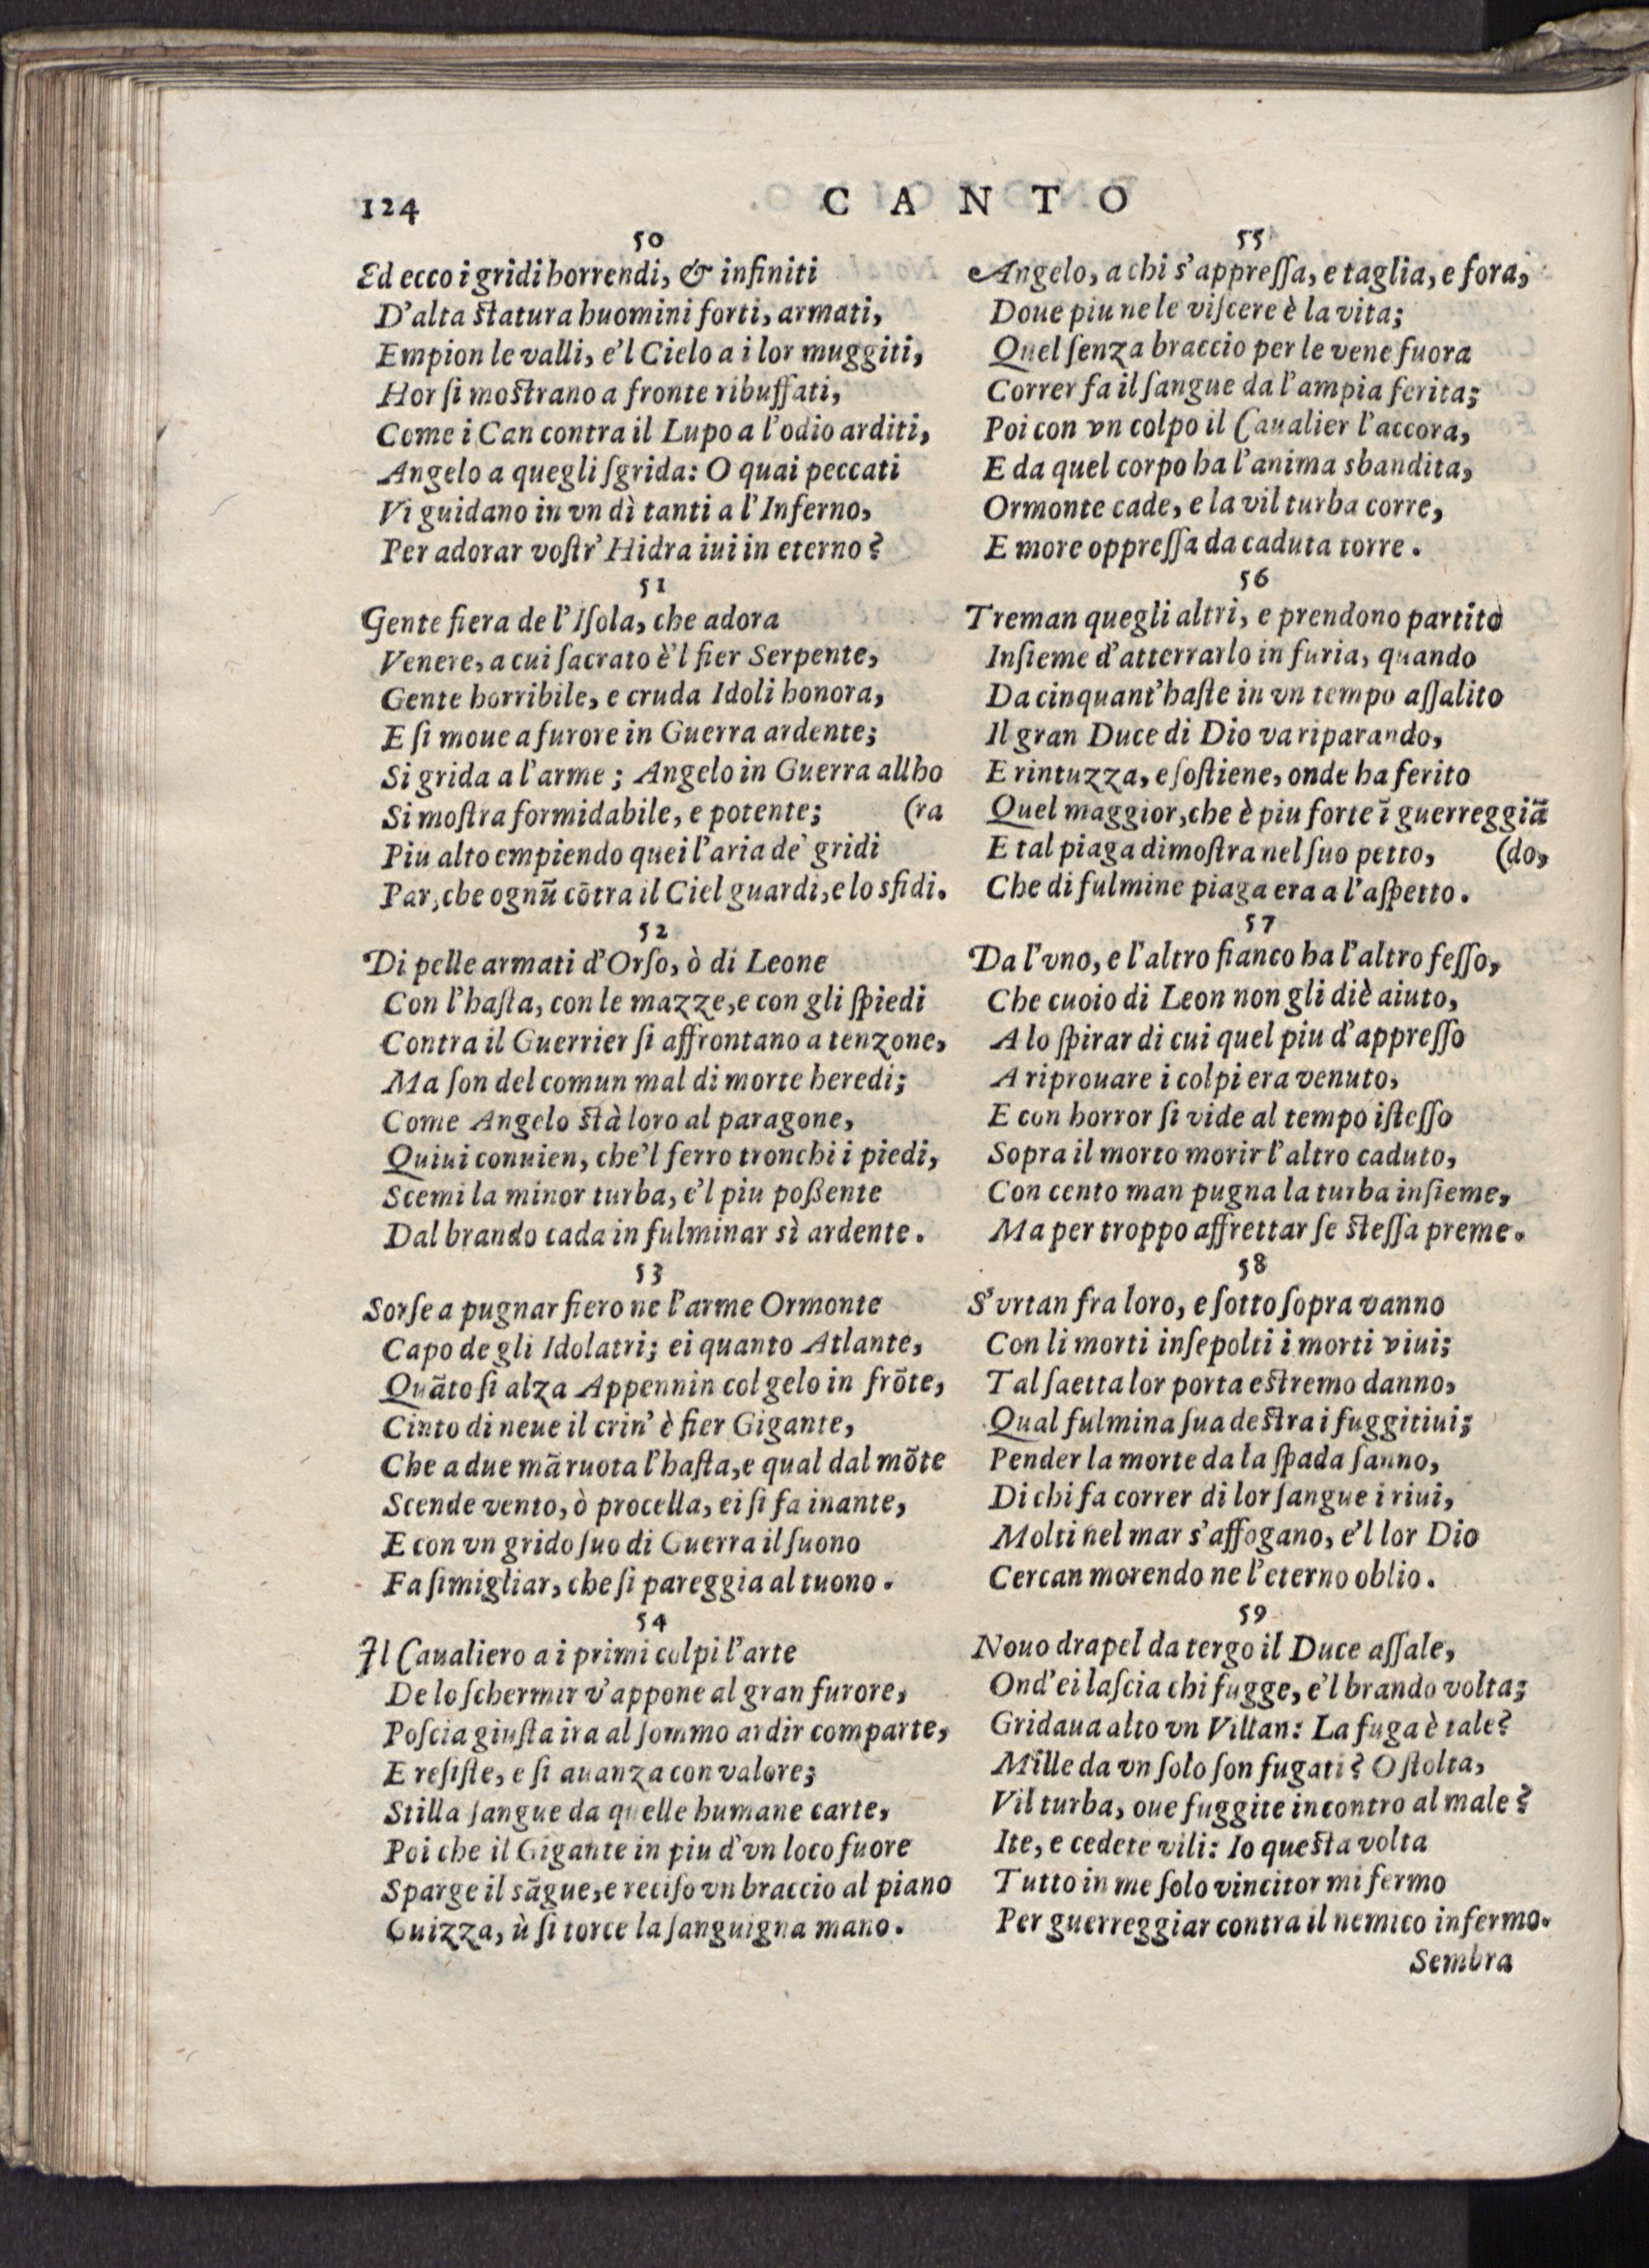 124
CANTO
50
Ed ecco i gridi horrendi, & infiniti
D'alta ſtatura huomini forti, armati,
Empion le valli, e'l Cielo a i lor muggiti,
Hor ſi moſtrano a fronte ribuffati,
Come i Can contra il Lupo a l'odio arditi,
Angelo a quegli ſgrida: O quai peccati
Vi guidano in vn dì tanti a l'Inferno,
Per adorar voſtr' Hidra iui in eterno?
51
Gente fiera de l'Iſola, che adora
Venere, a cui ſacrato è'l fier Serpente,
Gente horribile, e cruda Idoli honora,
E ſi moue a furore in Guerra ardente;
Si grida a l'arme; Angelo in Guerra allho
Si moſtra formidabile, e potente; (ra
Più alto empiendo quei l'aria de' gridi
Par, che ognũ cõtra il Ciel guardi, e lo sfidi.
52
Di pelle armati d'Orſo, ò di Leone
Con l'haſta, con le mazze, e con gli ſpiedi
Contra il Guerrier ſi affrontano a tenzone,
Ma ſon del comun mal di morte heredi;
Come Angelo ſtà loro al paragone,
Quiui conuien, che'l ferro tronchi i piedi,
Scemi la minor turba, e'l piu poßente
Dal brando cada in fulminar sì ardente.
53
Sorſe a pugnar fiero ne l'arme Ormonte
Capo de gli Idolatri; ei quanto Atlante,
Quãto ſi alza Appennin col gelo in frõte,
Cinto di neue il crin' è fier Gigante,
Che a due mã ruota l'haſta, e qual dal mõte
Scende vento, ò procella, ei ſi fa inante,
E con vn grido ſuo di Guerra il ſuono
Fa ſimigliar, che ſi pareggia al tuono.
54
Il Caualiero a i primi colpi l'arte
De lo ſchermir v'appone al gran furore,
Poſcia giuſta ira al ſommo ardir comparte,
E reſiſte, e ſi auanza con valore;
Stilla ſangue da quelle humane carte,
Poi che il Gigante in piu d'vn loco fuore
Sparge il sãgue, e reciſo vn braccio al piano
Guizza, ù ſi torce la ſanguigna mano.
55
Angelo, a chi s'appreſſa, e taglia, e fora,
Doue piu ne le viſcere è la vita;
Quel ſenza braccio per le vene fuora
Correr fa il ſangue da l'ampia ferita;
Poi con vn colpo il Caualier l'accora,
E da quel corpo ha l'anima sbandita,
Ormonte cade, e la vil turba corre,
E more oppreſſa da caduta torre.
56
Treman quegli altri, e prendono partito
Inſieme d'atterrarlo in furia, quando
Da cinquant'haſte in vn tempo aſſalito
Il gran Duce di Dio va riparando,
E rintuzza, e ſoſtiene, onde ha ferito
Quel maggior, che è piu forte ĩ guerreggiã
E tal piaga dimoſtra nel ſuo petto, (do,
Che di fulmine piaga era a l'aſpetto.
57
Da l'vno, e l'altro fianco ha l'altro feſſo,
Che cuoio di Leon non gli diè aiuto,
A lo ſpirar di cui quel piu d'appreſſo
A riprouare i colpi era venuto,
E con horror ſi vide al tempo iſteſſo
Sopra il morto morir l'altro caduto,
Con cento man pugna la turba inſieme,
Ma per troppo affrettar ſe ſteſſa preme.
58
S'vrtan fra loro, e ſotto ſopra vanno
Con li morti inſepolti i morti viui;
Tal ſaetta lor porta eſtremo danno,
Qual fulmina ſua deſtra i fuggitiui;
Pender la morte da la ſpada ſanno,
Di chi fa correr di lor ſangue i riui,
Molti nel mar s'affogano, e'l lor Dio
Cercan morendo ne l'eterno oblio.
59
Nouo drapel da tergo il Duce aſſale,
Ond'ei laſcia chi fugge, e'l brando volta;
Gridaua alto vn Villan: La fuga è tale?
Mille da vn ſolo ſon fugati? O ſtolta,
Vil turba, oue fuggite incontro al male?
Ite, e cedete vili: Io queſta volta
Tutto in me ſolo vincitor mi fermo
Per guerreggiar contra il nemico infermo.
Sembra